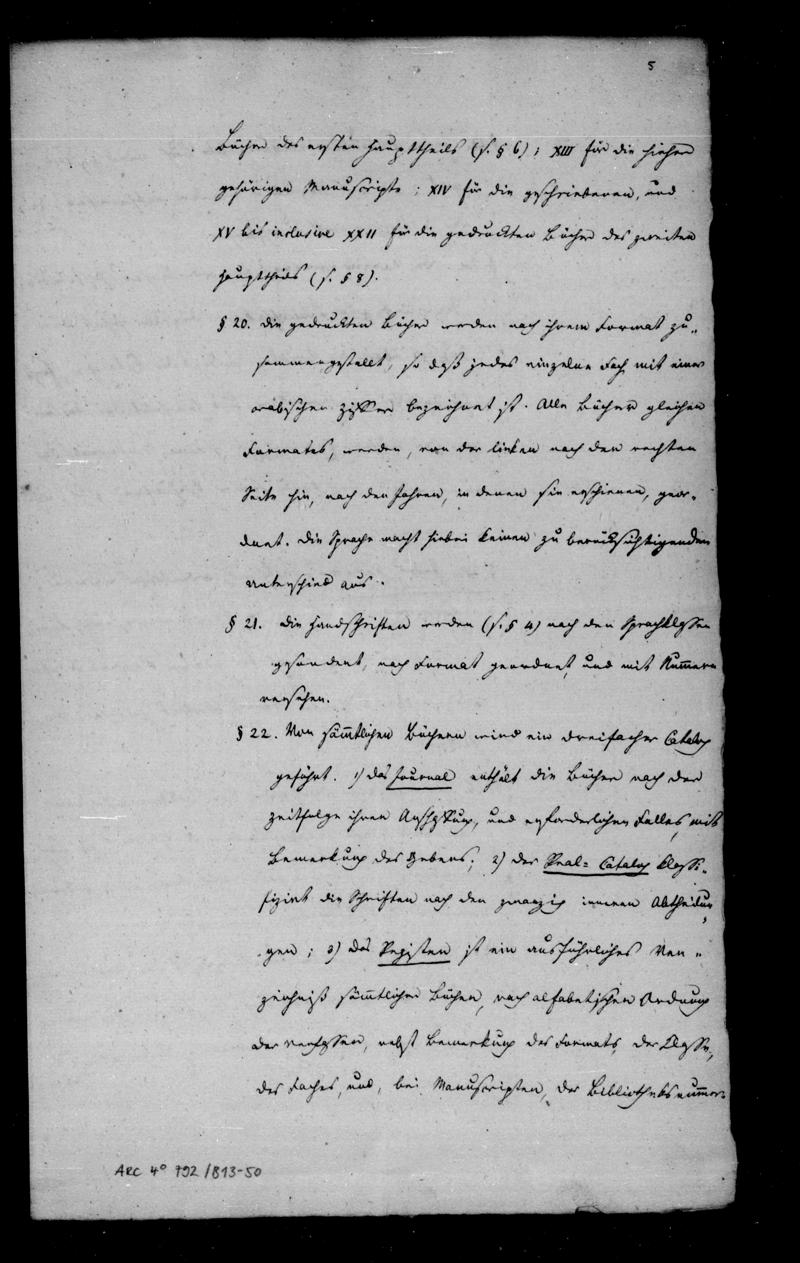 5
Bücher des ersten Haupttheils (s. § 6); XIII für die hieher
gehörigen Manuscripte; XIV für die geschriebenen, und
XV bis inclusive XXII für die gedruckten Bücher des zweiten
Haupttheils (s. § 8).
§ 20. Die gedruckten Bücher werden nach ihrem Format zu„
sammengestellt, so daß jedes einzelne Fach mit einer
arabischen Ziffer bezeichnet ist. Alle Bücher gleichen
Formates, werden, von der linken nach den rechten
Seite hin, nach den Jahren, in denen sie erschienen, geor„
dnet. Die Sprache macht hiebei keinen zu berücksichtigenden
Unterschied aus.
§ 21. Die Handschriften werden (s. § 4) nach den Sprachklassen
gesondert, nach Format geordnet, und mit Num̄ern
versehen.
§ 22. Von säm̄tlichen Büchern wird ein dreifacher Catalog
geführt. 1) das Journal enthält die Bücher nach der
Zeitfolge ihrer Anschaffung, und erforderlichen Falles, mit
Bemerkung des Gebers; 2) der Real= Catalog klassi„
fizirt die Schriften nach den zwanzig inneren Abtheilun„
gen; 3) das Register ist ein ausführliches Ver„
zeichniß säm̄tlicher Bücher, nach alfabetischer Ordnung
der Verfasser, nebst Bemerkung des Formats, der Classe,
des Faches, und, bei Manuscripten, der Bibliotheksnum̄er
ARC 4° 792 / B13-50